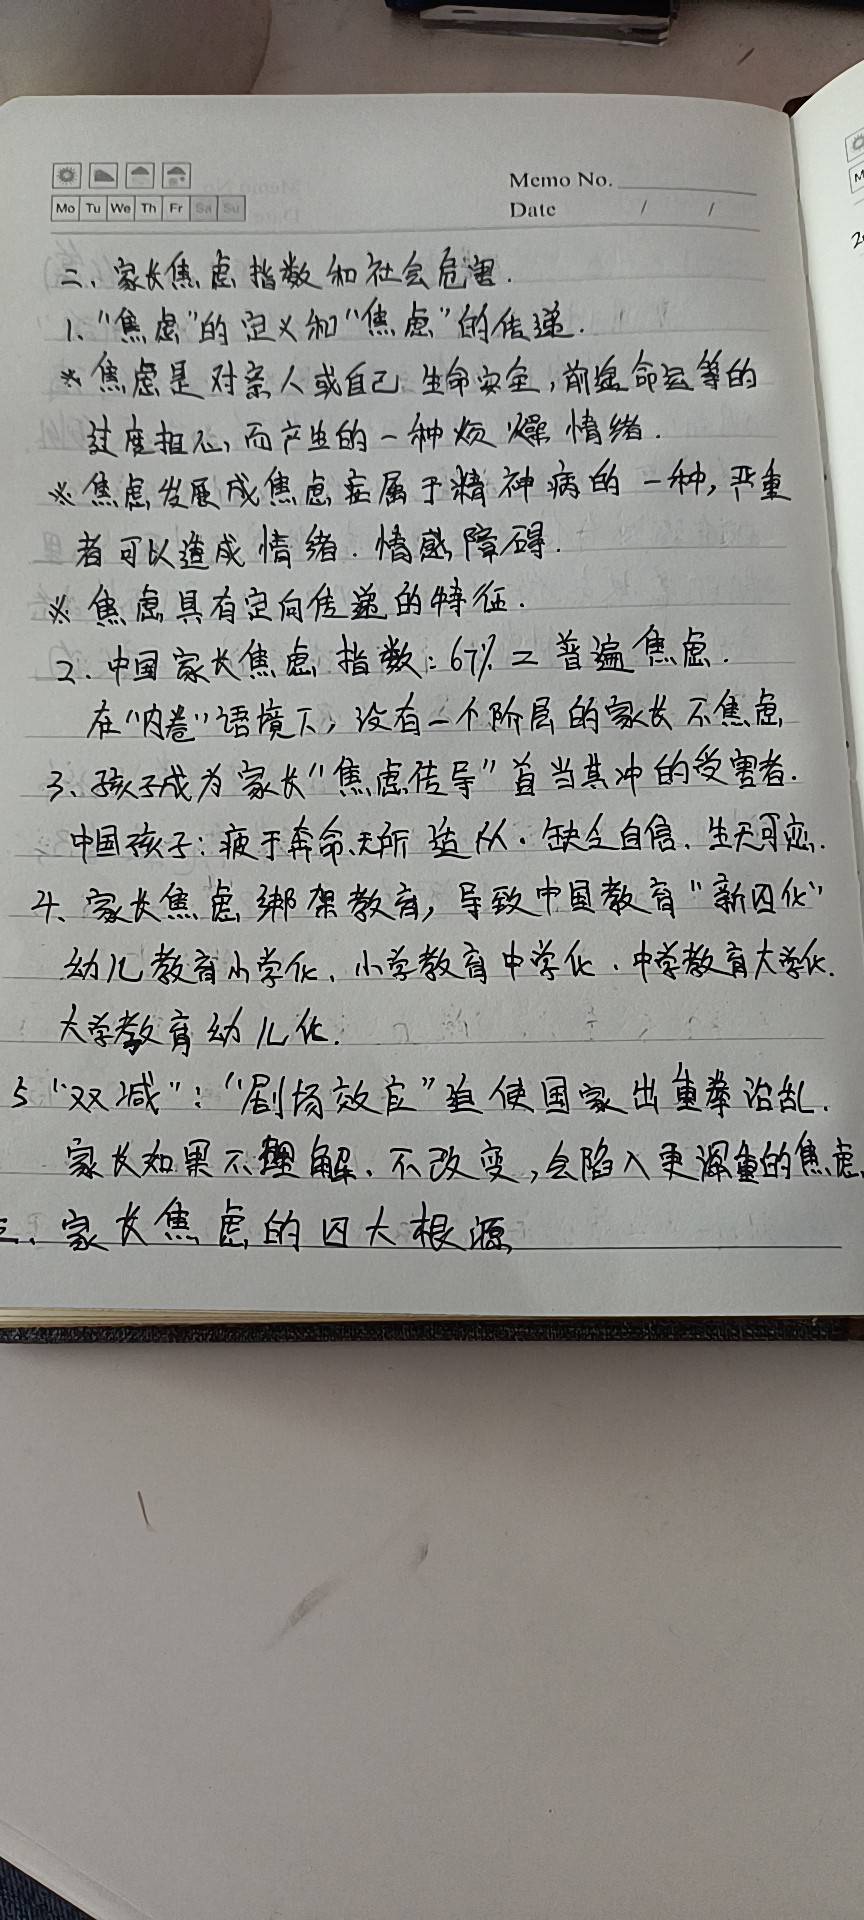 Memo No.
Mo Tu We Th Fr Sa Su
Date / /
二、家长焦虑指数和社会危害.
1、"焦虑"的定义和"焦虑"的传递.
※焦虑是对亲人或自己生命安全,前途命运等的
过度担心,而产生的一种烦燥情绪.
※焦虑发展成焦虑症属于精神病的一种,严重
者可以造成情绪.情感障碍.
※焦虑具有定向传递的特征.
2.中国家长焦虑指数:67%=普遍焦虑.
在"内卷"语境下,没有一个阶层的家长不焦虑
3、孩子成为家长"焦虑传导"首当其冲的受害者.
中国孩子:疲于奔命、无所适从.缺乏自信、生无可恋.
4、家长焦虑绑架教育,导致中国教育"新四化"
幼儿教育小学化、小学教育中学化.中学教育大学化.
大学教育幼儿化.
5"双减":"剧场效应"迫使国家出重拳治乱.
家长如果不理解、不改变,会陷入更深重的焦虑.
三、家长焦虑的四大根源